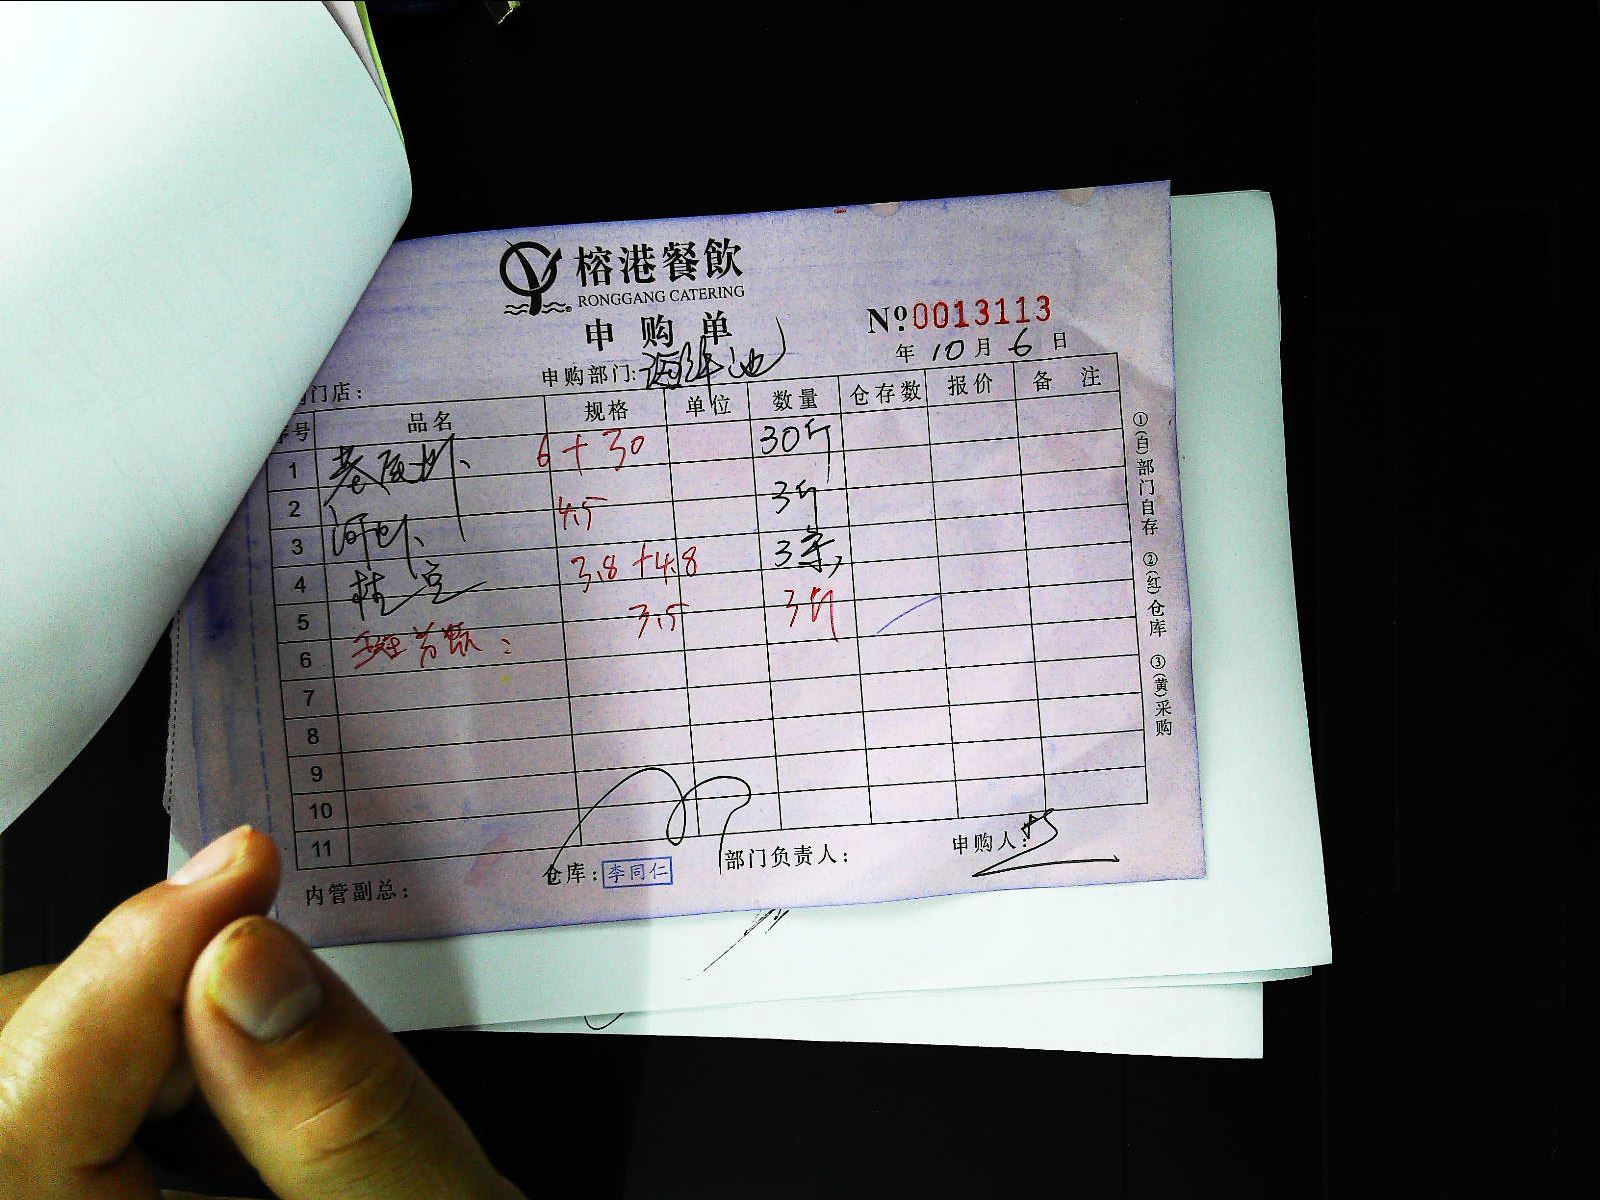 榕港餐飲
RONGGANG CATERING
申购单
№0013113
年 10 月 6 日
门店： 申购部门: 海鲜池
序号 品名 规格 单位 数量 仓存数 报价 备注
1 6+30 30斤
2 4.5 3斤
3 河虾
4 桂 3.8+4.8 3条
5 3.5 3斤
6
7
8
9
10
11
内管副总： 仓库：李同仁 部门负责人： 申购人：
①(白)部门自存 ②(红)仓库 ③(黄)采购